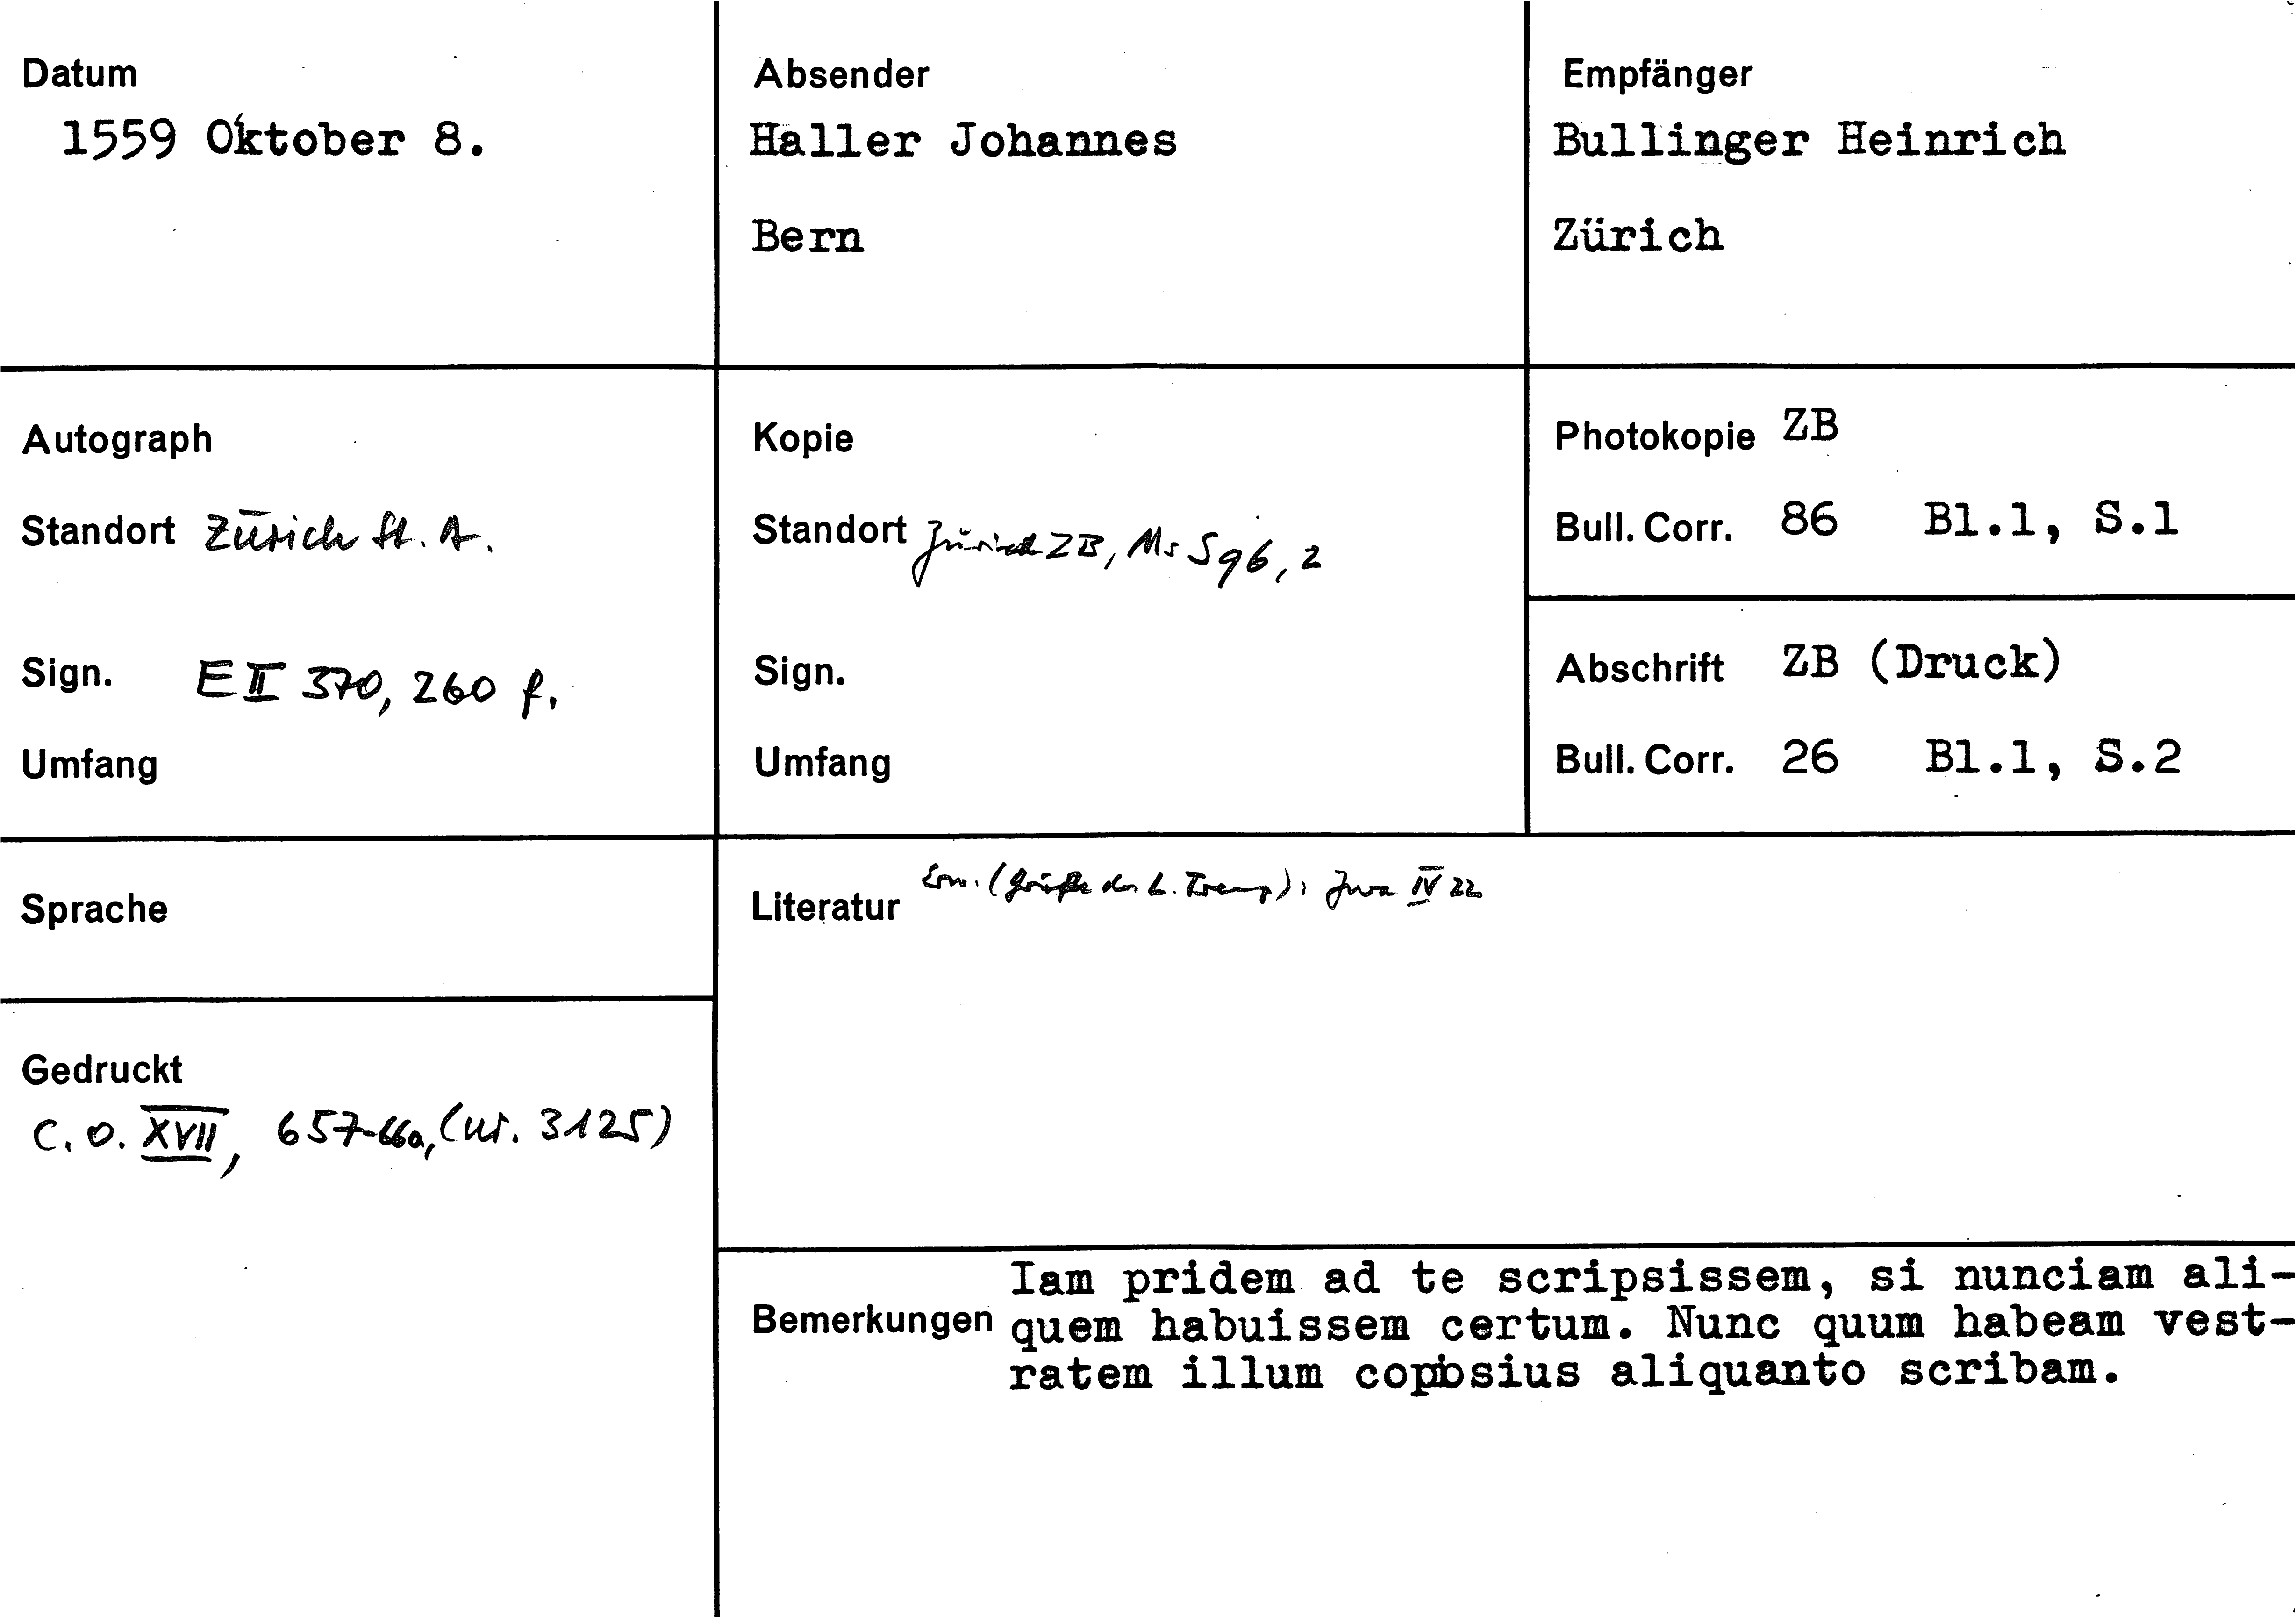 Datum
1559 Oktober 8.
Absender
Haller Johannes
Bern
Empfänger
Bullinger Heinrich
Zürich
Autograph
Standort Zürich St. A.
Sign. E II 370, 260 f.
Umfang
Kopie
Standort Zürich ZB, Ms S 96, 2
Sign.
Umfang
Photokopie ZB
Bull. Corr. 86 Bl.1, S.1
Abschrift ZB (Druck)
Bull. Corr. 26 Bl.1, S.2
Sprache
Gedruckt
C. O. XVII, 657-660, (Nr. 3125)
Literatur Erw. ( L. ) IV 22
Bemerkungen
Iam pridem ad te scripsissem, si nunciam ali-
quem habuissem certum. Nunc quum habeam vest-
ratem illum copiosius aliquanto scribam.